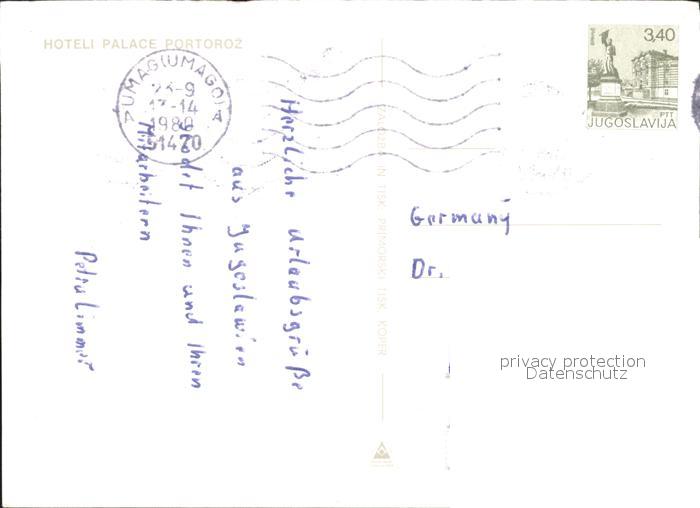 HOTELI PALACE PORTOROŽ
UMAG (UMAGO)
23-9
13-14
1980
51470
3,40
PTT
JUGOSLAVIJA
Herzliche Urlaubsgrüße
aus Jugoslawien
Ihnen und Ihren
Mitarbeitern
Petra Limmer
ZALOŽBA IN TISK PRIMORSKI TISK KOPER
Germany
Dr.
privacy protection
Datenschutz